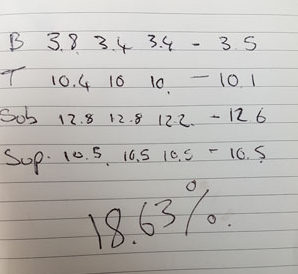 B 3.8 3.4 3.4 - 3.5
T 10.4 10 10. - 10.1
Sub 12.8 12.8 12.2. - 12 6
Sup. 10.5. 10.5 10.5 - 10.5
18.63%.